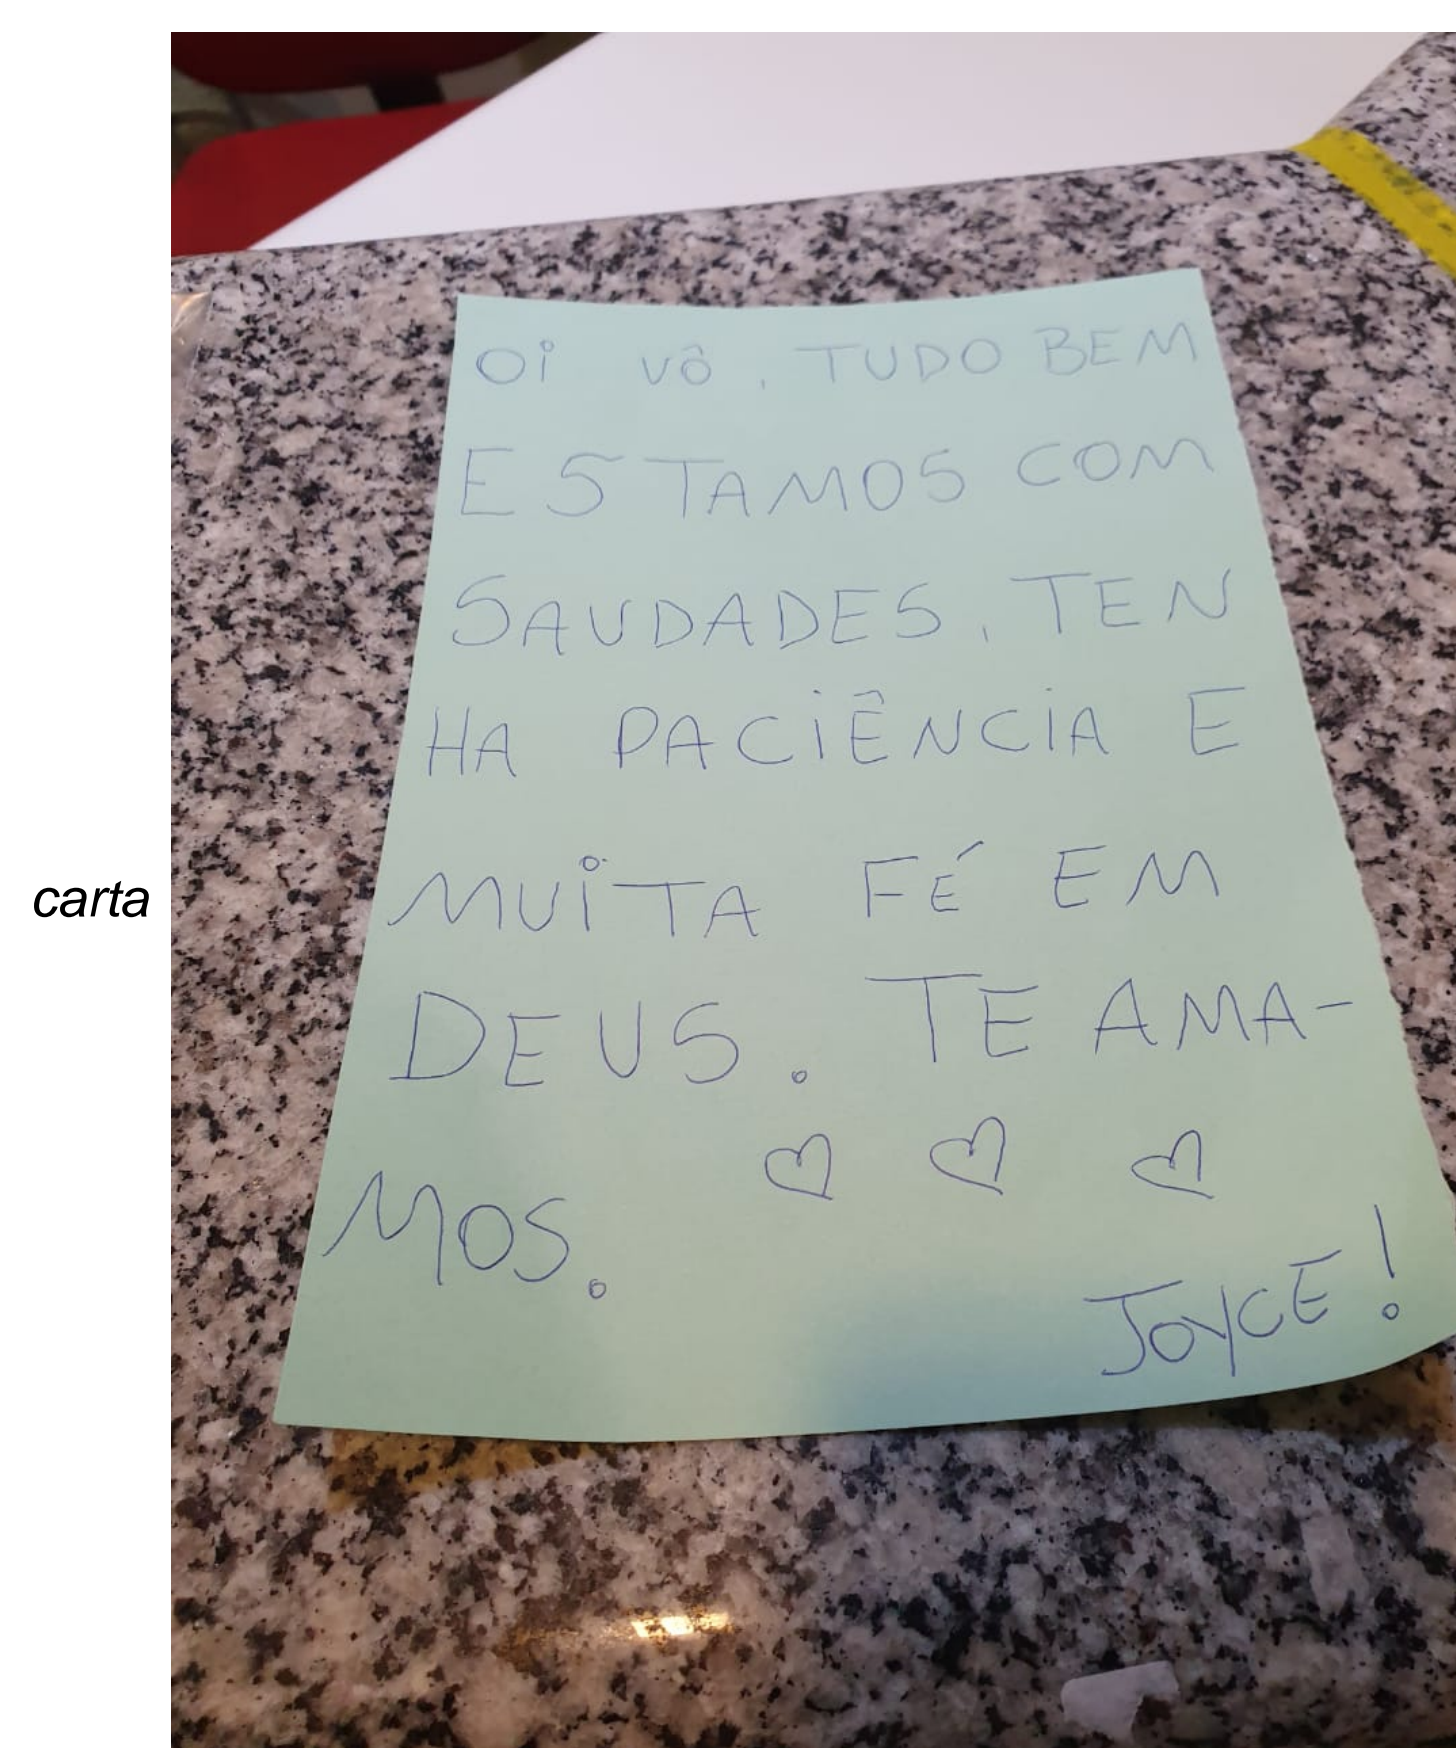 OI VÔ, TUDO BEM
ESTAMOS COM
SAUDADES, TEN
HA PACIÊNCIA E
MUITA FÉ EM
DEUS. TE AMA-
MOS. ♡ ♡ ♡
JOYCE!
carta